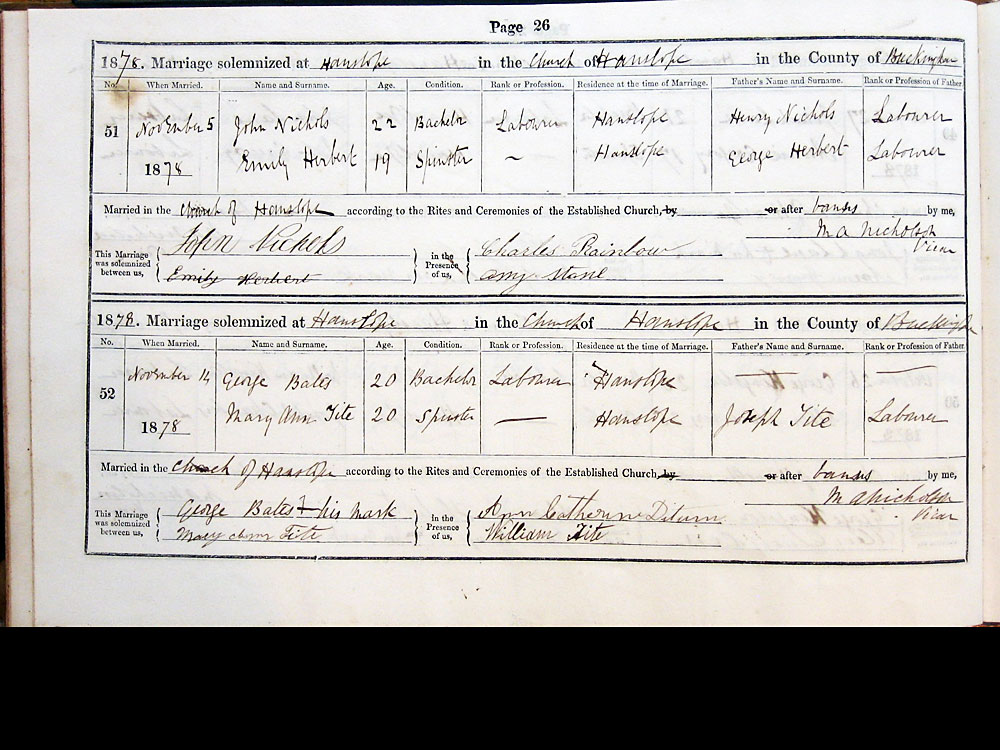 Page 26
1878. Marriage solemnized at Hanslope in the Church of Hanslope in the County of Buckingham
No. When Married. Name and Surname. Age. Condition. Rank or Profession. Residence at the time of Marriage. Father's Name and Surname. Rank or Profession of Father.
51 November 5 John Nichols 22 Bachelor Labourer Hanslope Henry Nichols Labourer
1878 Emily Herbert 19 Spinster ~ Hanslope George Herbert Labourer
Married in the Church of Hanslope according to the Rites and Ceremonies of the Established Church, by or after banns by me,
M A Nicholson
Vicar
This Marriage was solemnized between us, John Nichols in the Presence of us, Charles Rainbow
Emily Herbert Amy Stane
1878. Marriage solemnized at Hanslope in the Church of Hanslope in the County of Buckingham
No. When Married. Name and Surname. Age. Condition. Rank or Profession. Residence at the time of Marriage. Father's Name and Surname. Rank or Profession of Father.
52 November 14 George Bates 20 Bachelor Labourer Hanslope — —
1878 Mary Ann Tite 20 Spinster — Hanslope Joseph Tite Labourer
Married in the Church of Hanslope according to the Rites and Ceremonies of the Established Church, by or after banns by me,
M A Nicholson
Vicar
This Marriage was solemnized between us, George Bates his mark In the Presence of us, Ann Catherine
Mary Ann Tite William Tite